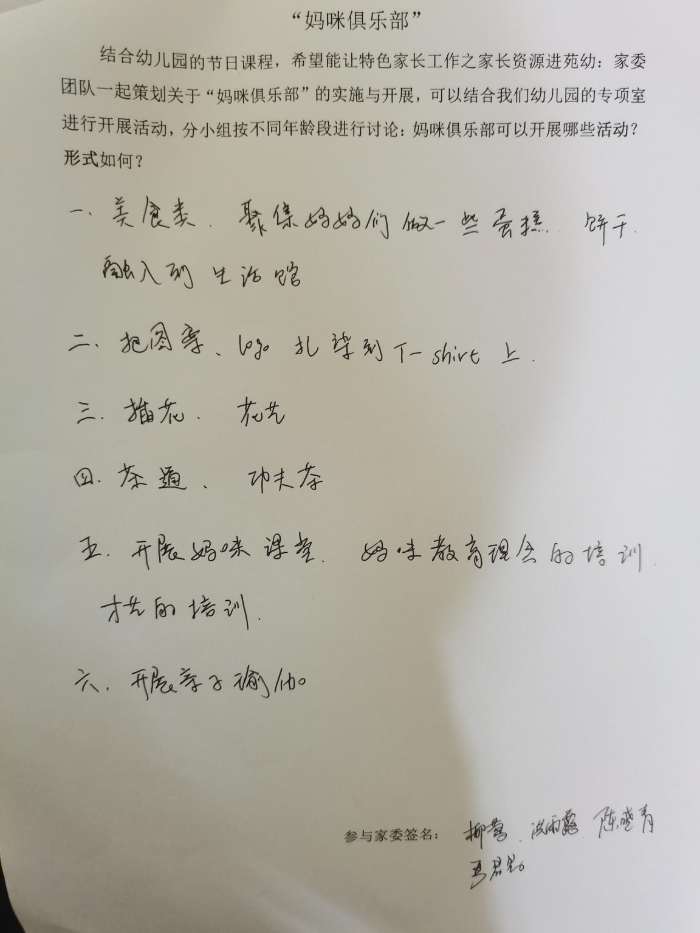 “妈咪俱乐部”
结合幼儿园的节日课程，希望能让特色家长工作之家长资源进苑幼：家委
团队一起策划关于“妈咪俱乐部”的实施与开展，可以结合我们幼儿园的专项室
进行开展活动，分小组按不同年龄段进行讨论：妈咪俱乐部可以开展哪些活动？
形式如何？
一、美食类、聚集妈妈们做一些蛋糕、饼干、
融入到生活馆
二、把图案、logo 扎染到T-shirt 上.
三、插花、花艺
四、茶道、功夫茶
五、开展妈咪课堂、妈咪教育理念的培训、
才艺的培训.
六、开展亲子瑜伽
参与家委签名： 柳莺、洪雨露 陈晓青